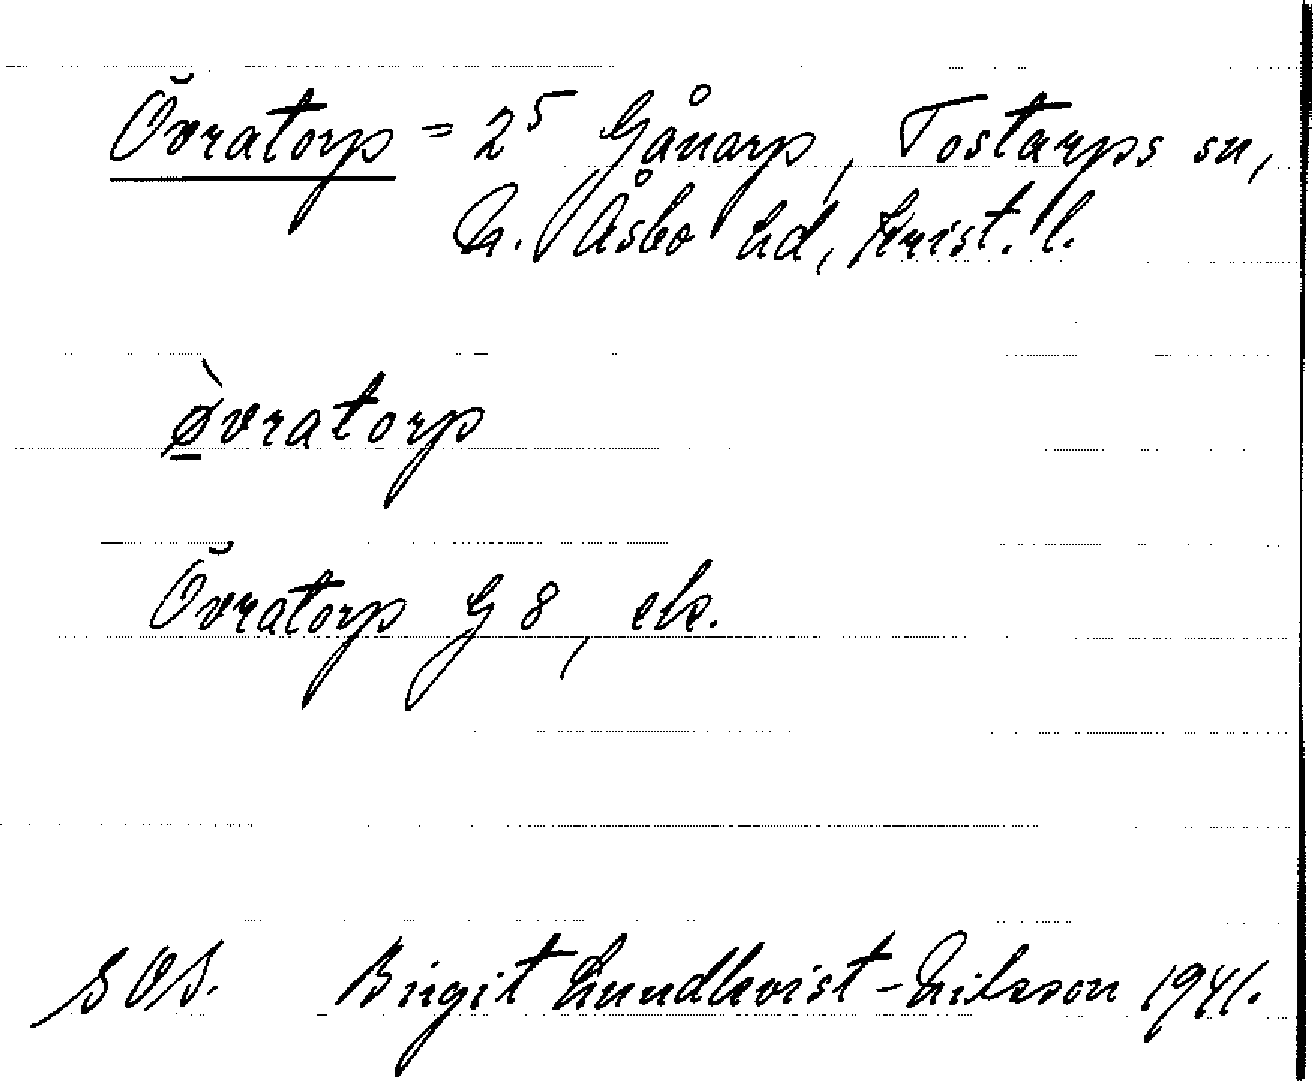 Övratorp = 2⁵ Gånarp, Tostarps sn,
N. Åsbo hd, Krist. l.
ø̱̀vratorp
Övratorp G 8, ek.
SOS. Birgit Lundkvist-Nilsson 1941.